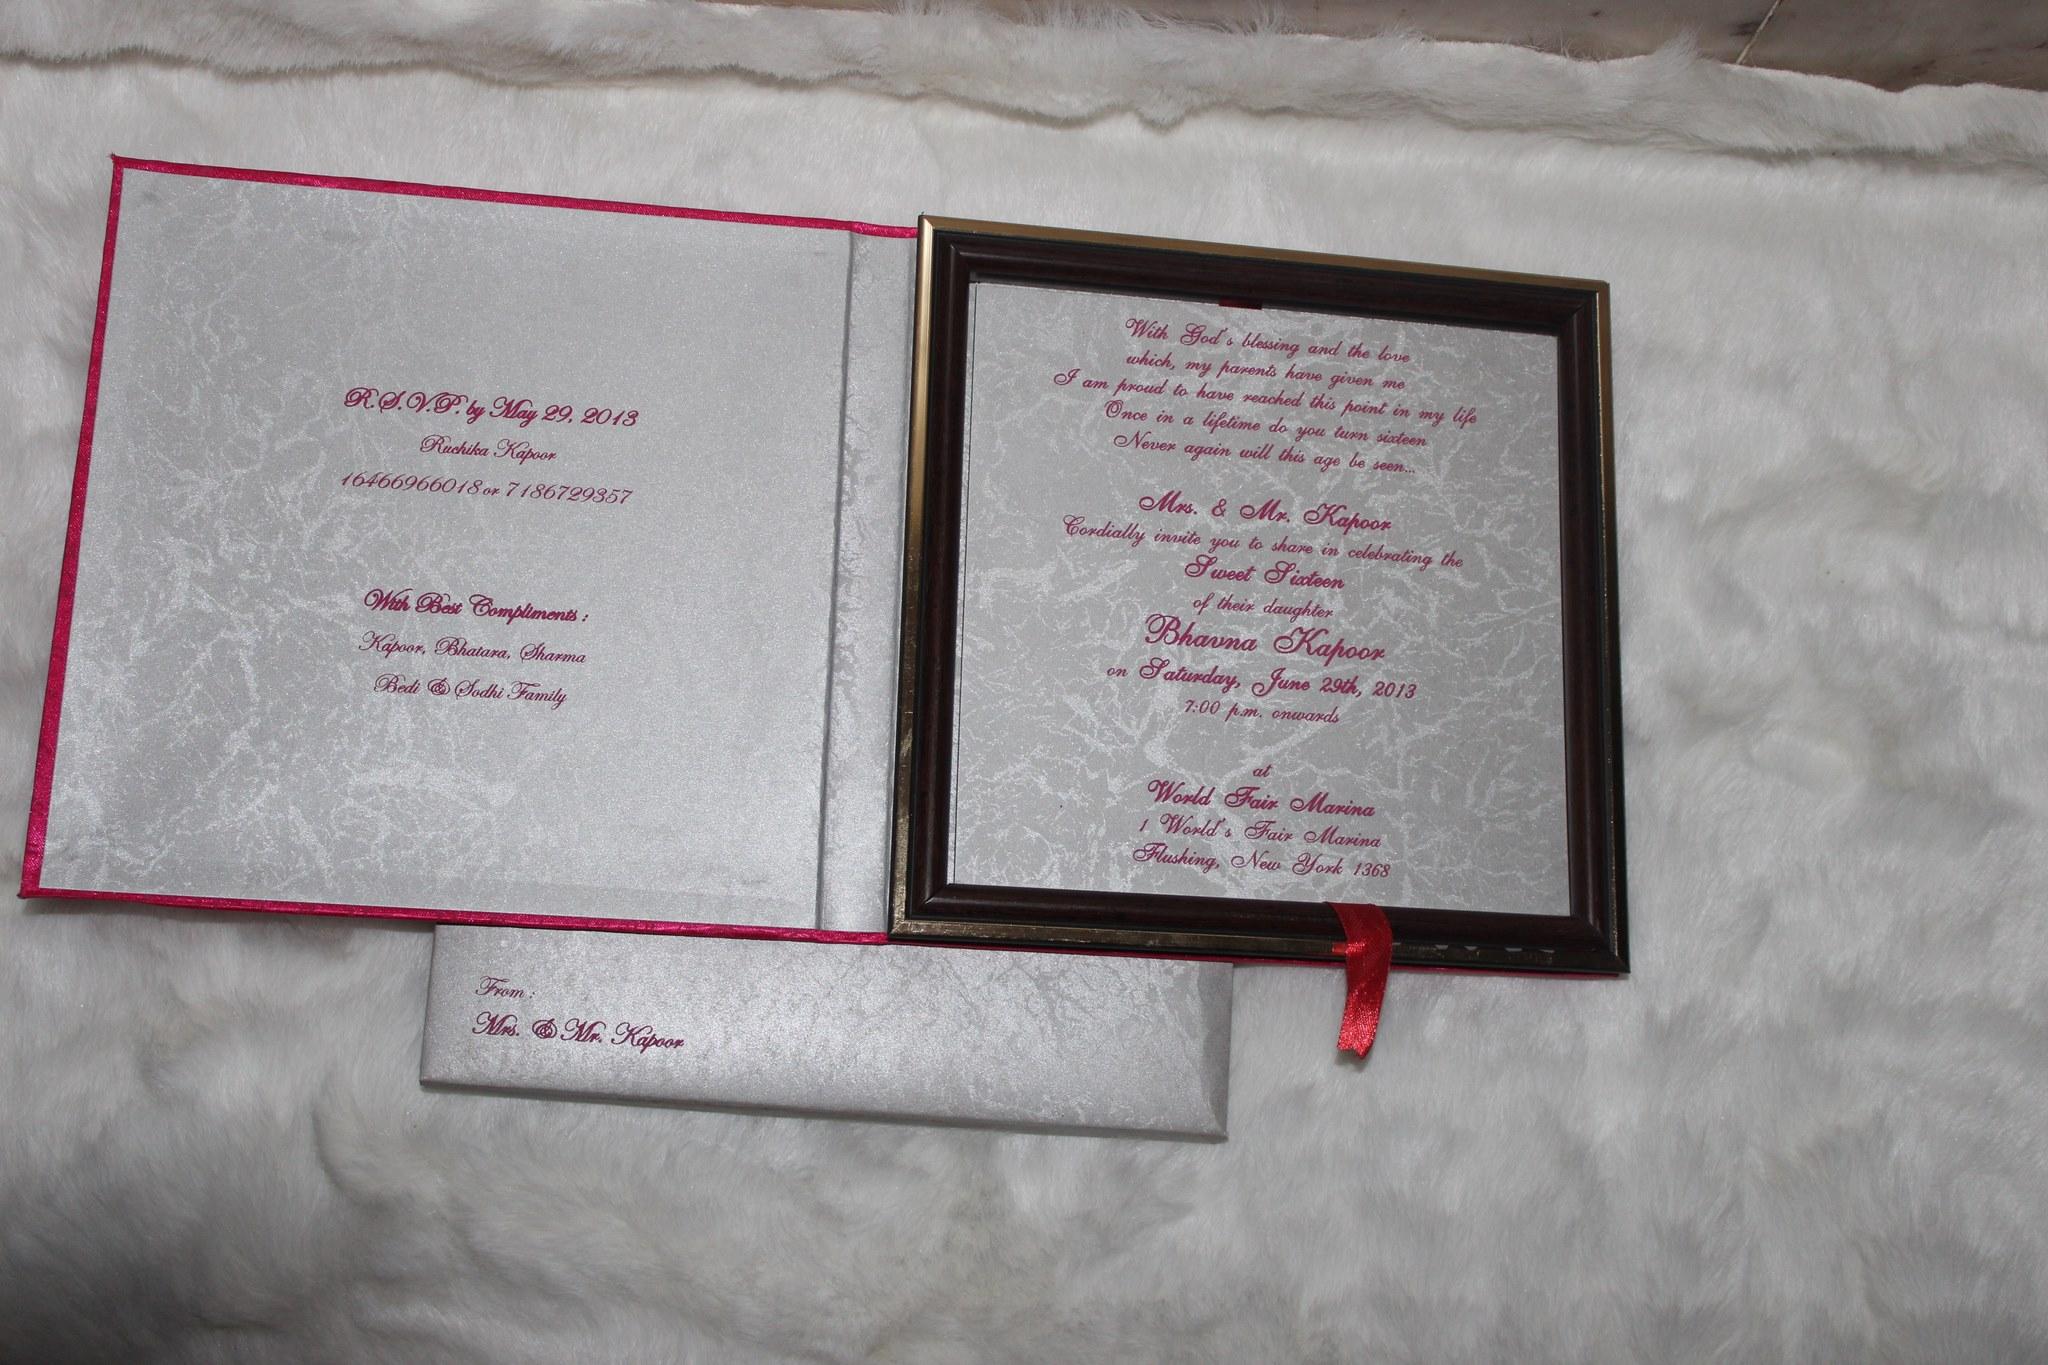 R.S.V.P. by May 29, 2013
Ruchika Kapoor
16466966018 or 7186729357
With Best Compliments :
Kapoor, Bhatara, Sharma
Bedi & Sodhi Family
With God's blessing and the love
which, my parents have given me
I am proud to have reached this point in my life
Once in a lifetime do you turn sixteen
Never again will this age be seen...
Mrs. & Mr. Kapoor
Cordially invite you to share in celebrating the
Sweet Sixteen
of their daughter
Bhavna Kapoor
on Saturday, June 29th, 2013
7:00 p.m. onwards
at
World Fair Marina
1 World's Fair Marina
Flushing, New York 1368
From :
Mrs. & Mr. Kapoor